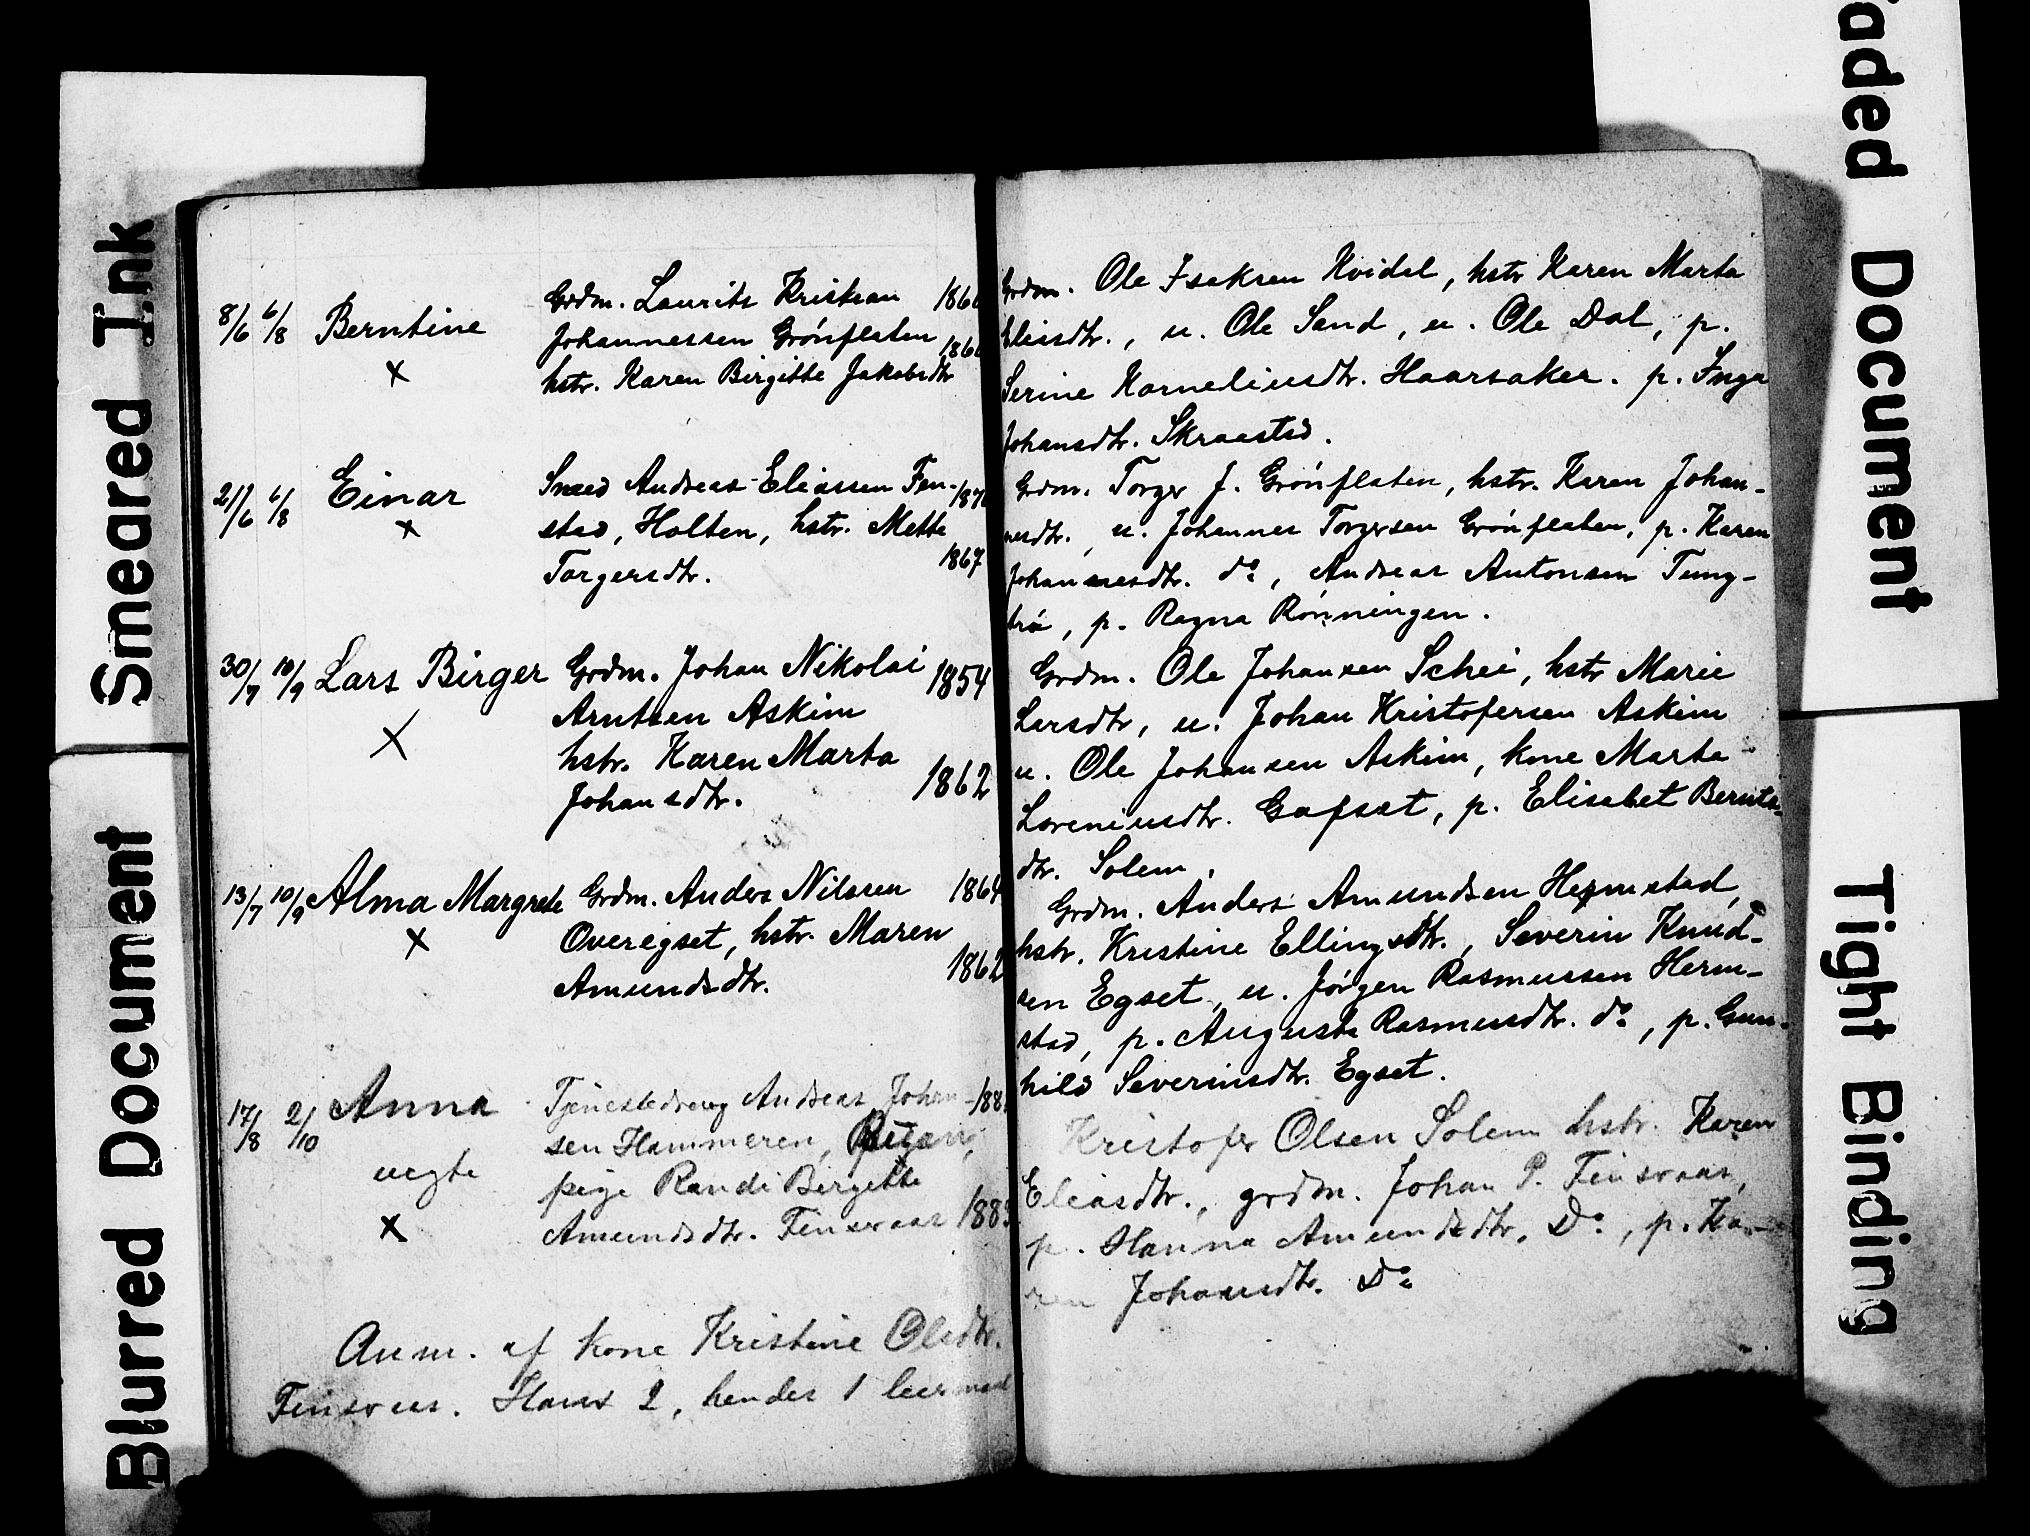 Smeared Ink
Blurred Document
8/6 6/8 Berntine
x
Grdm. Laurits Kristian
Johannessen Grönflaten
hstr. Karen Birgitte Jakobsdtr
21/6 6/8 Einar
x
Andreas Eliassen Fen-
stad, Holten, hstr. Mette
1867
Torgersdtr.
30/7 10/9 Lars Birger
x
Grdm. Johan Nikolai 1854
Arntsen Askim
hstr. Karen Marta
Johansdtr. 1862
13/7 10/9 Alma Margrete
x
Grdm. Anders Nilssen 1864
Overegset, hstr. Maren
Amundsdtr. 1862
17/8 2/10 Anna
uegte
x
Andreas Johan-
sen Hammeren,
pige Randi Birgitte
Amundsdtr.
Anm. af kone Kristine Olsdtr.
Hans 2, hendes 1 leiermaal
Grdm. Ole Isaksen Kvidal, hstr Karen Marta
Eliasdtr., u. Ole Sand, u. Ole Dal, p.
Serine Korneliusdtr. Haarsaker. p. Inga
Johansdtr. Skraastad.
Grdm. Torger J. Grönflaten, hstr. Karen Johan-
nesdtr., u. Johannes Torgersen Grönflaten, p. Karen
Johannesdtr. do, Andreas Antonsen Tung-
trö, p. Ragna Rönningen.
Grdm. Ole Johansen Schei, hstr Marie
Larsdtr, u. Johan Kristofersen Askim
u. Ole Johansen Askim, kone Marta
Loreniusdtr. Gafset, p. Elisabet Bernts-
dtr. Solem.
Grdm. Anders Amundsen Hermstad,
hstr. Kristine Ellingsdtr., Severin Knud-
sen Egset, u. Jörgen Rasmussen Herm-
stad, p. Augusta Rasmusdtr. do, p. Gun-
hild Severinsdtr. Egset.
Kristofer Olsen Solem hstr. Karen
Eliasdtr., grdm. Johan P.
p. Hanna Amundsdtr. Do, p. Ka-
ren Johansdtr. Do
aded Document
Tight Binding